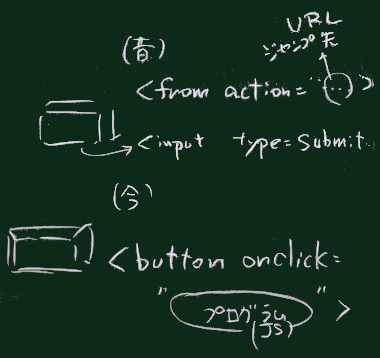 URL
ジャンプ先
(昔)
<from action="..."
<input type=Submit.
(今)
<button onclick=
"プログラム
(JS)">